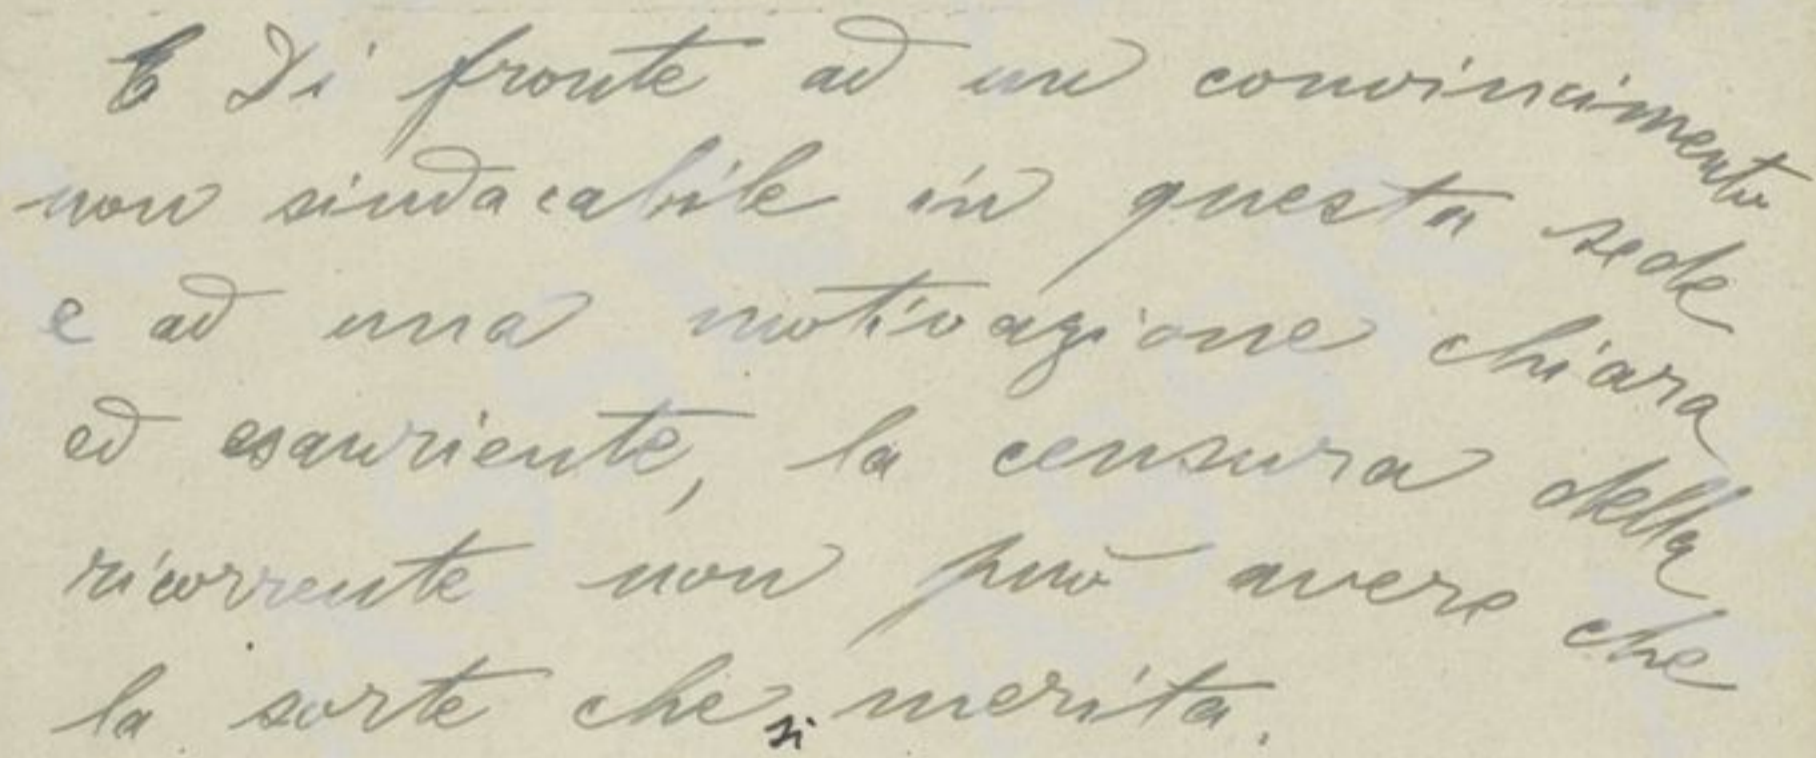 E Di fronte ad un convincimento
non sindacabile in questa sede
e ad una motivazione chiara
ed esauriente, la censura della
ricorrente non può avere che
la sorte che si merita.